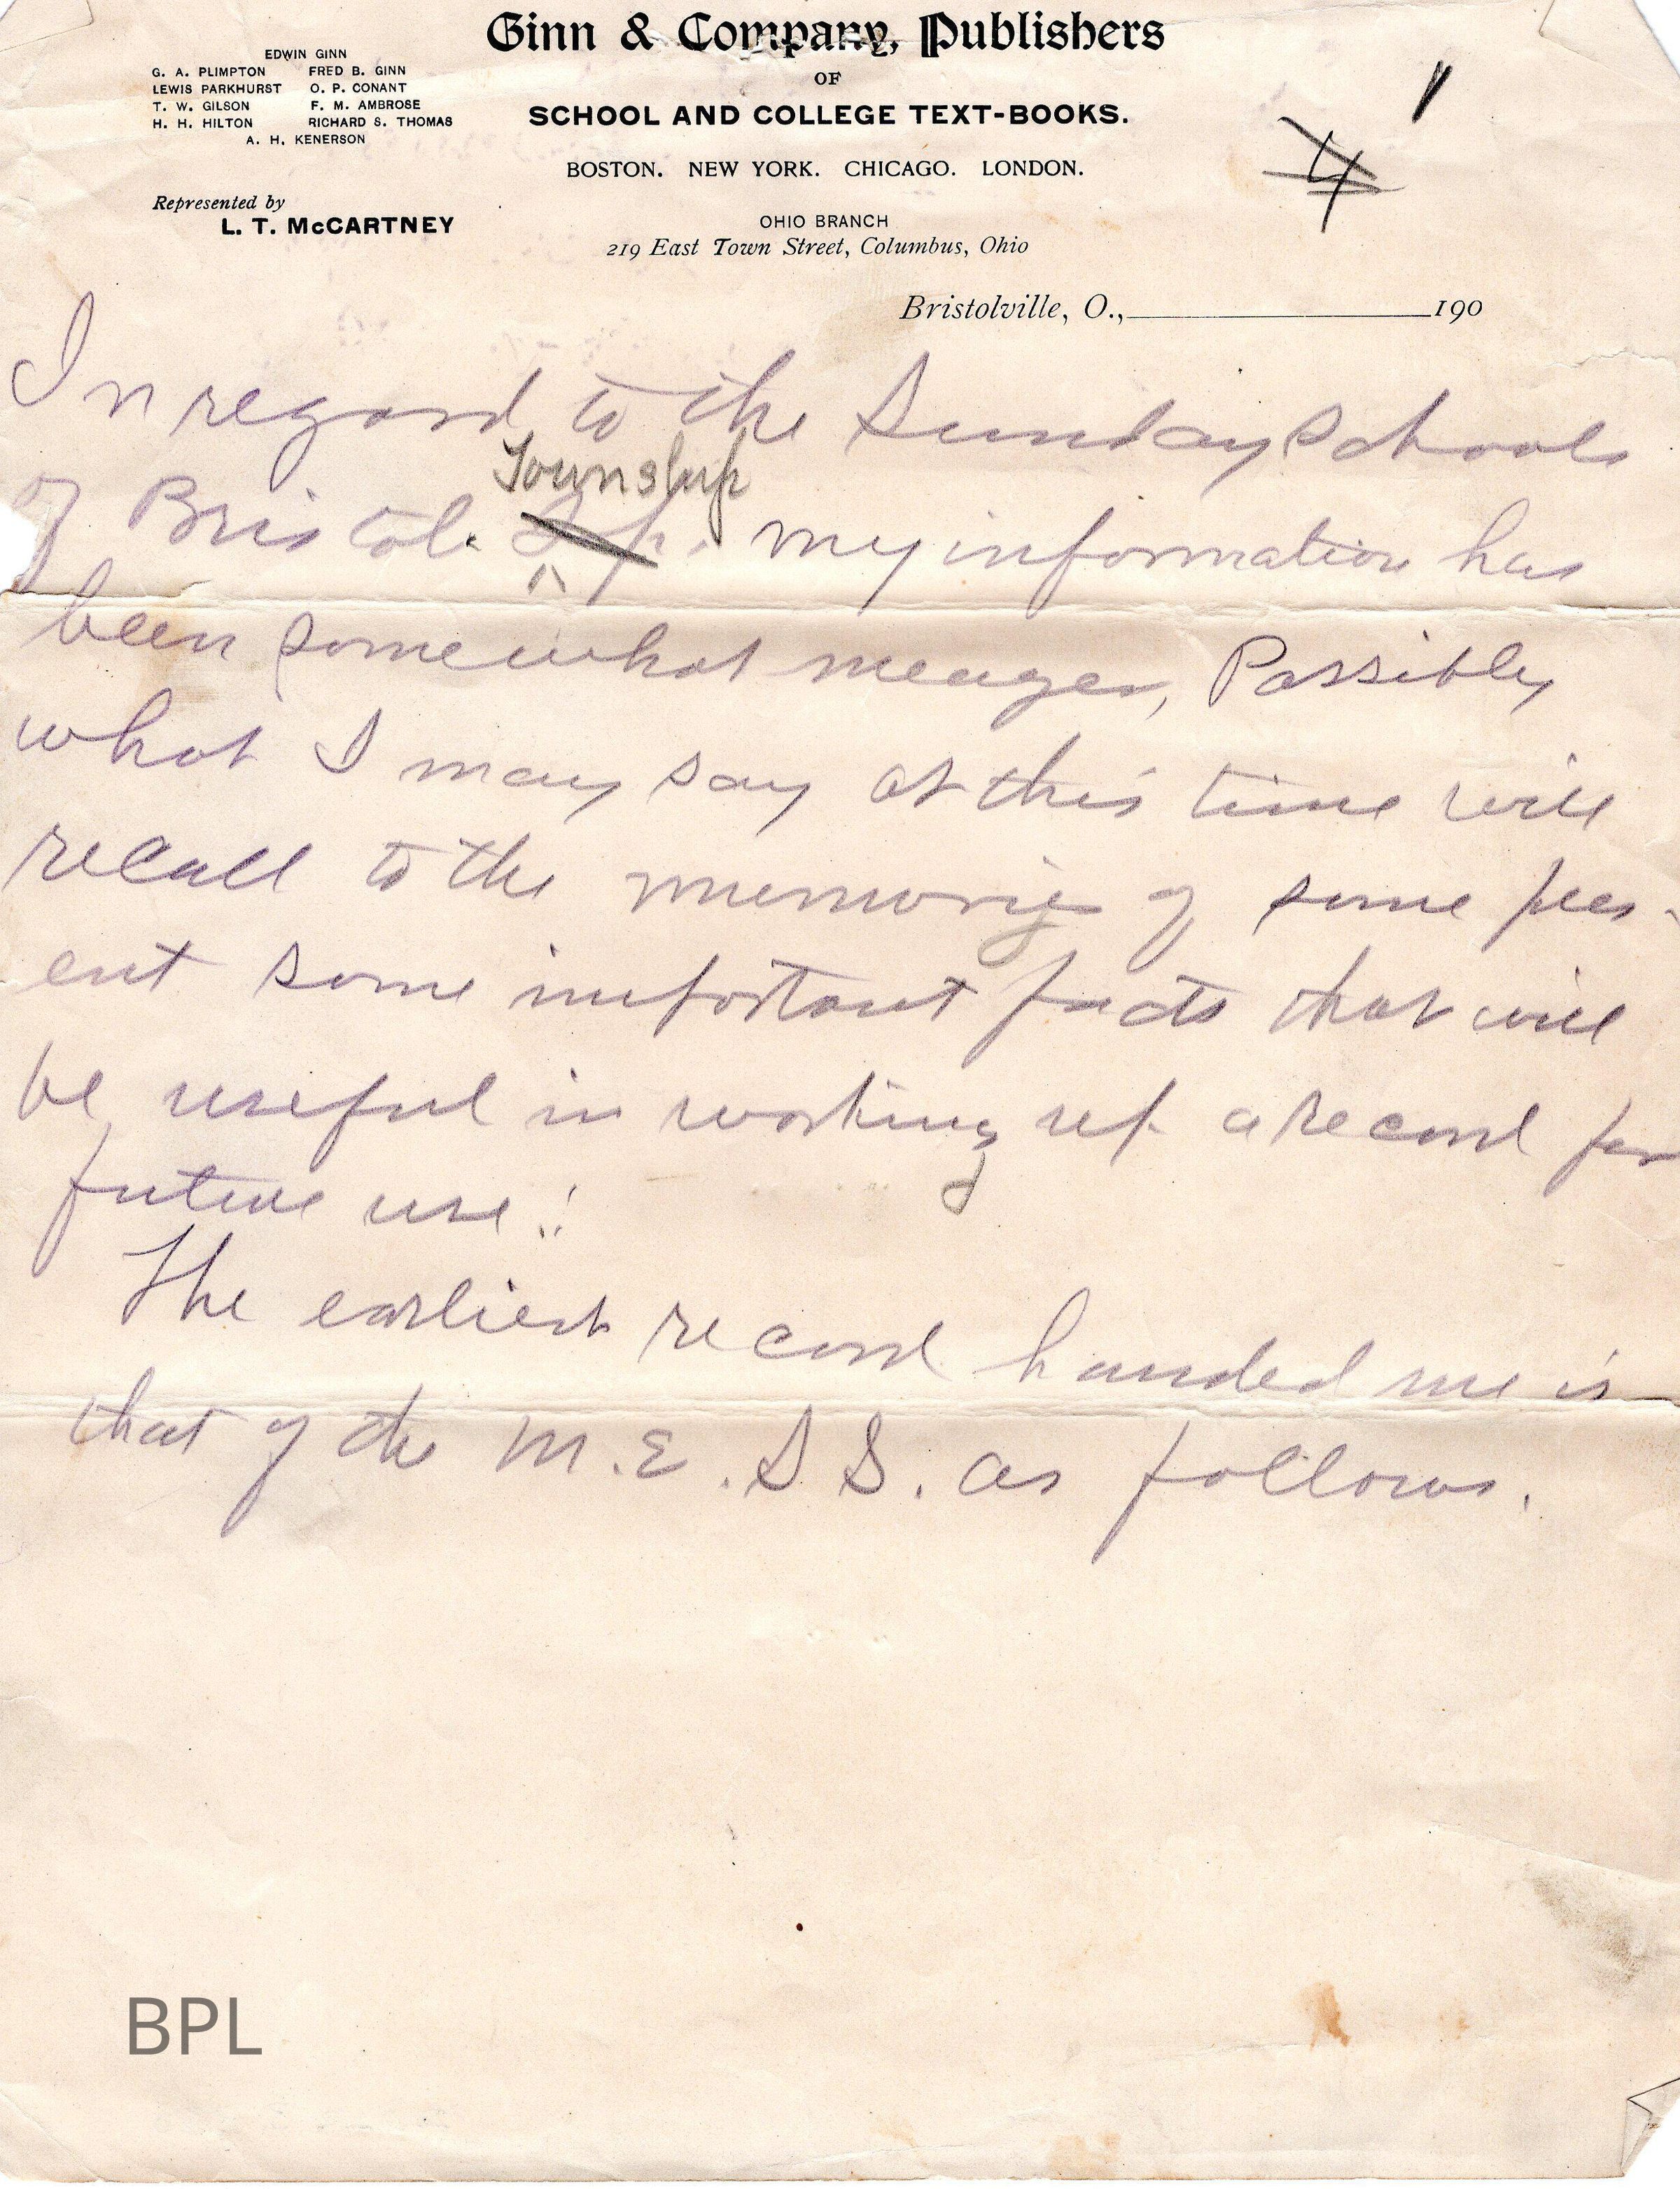 Ginn & Company, Publishers
OF
SCHOOL AND COLLEGE TEXT-BOOKS.
BOSTON. NEW YORK. CHICAGO. LONDON.
EDWIN GINN
G. A. PLIMPTON FRED B. GINN
LEWIS PARKHURST O. P. CONANT
T. W. GILSON F. M. AMBROSE
H. H. HILTON RICHARD S. THOMAS
A. H. KENERSON
Represented by
L. T. McCARTNEY
OHIO BRANCH
219 East Town Street, Columbus, Ohio
1
4
Bristolville, O., 190
In regard to the Sunday Schools
Township
of Bristol. Tp. my information has
been somewhat meager, Possibly
what I may say at this time will
recall to the memory of some pres-
ent some important facts that will
be useful in working up a record for
future use.
The earliest record handed me is
that of the M.E.S.S. as follows.
BPL